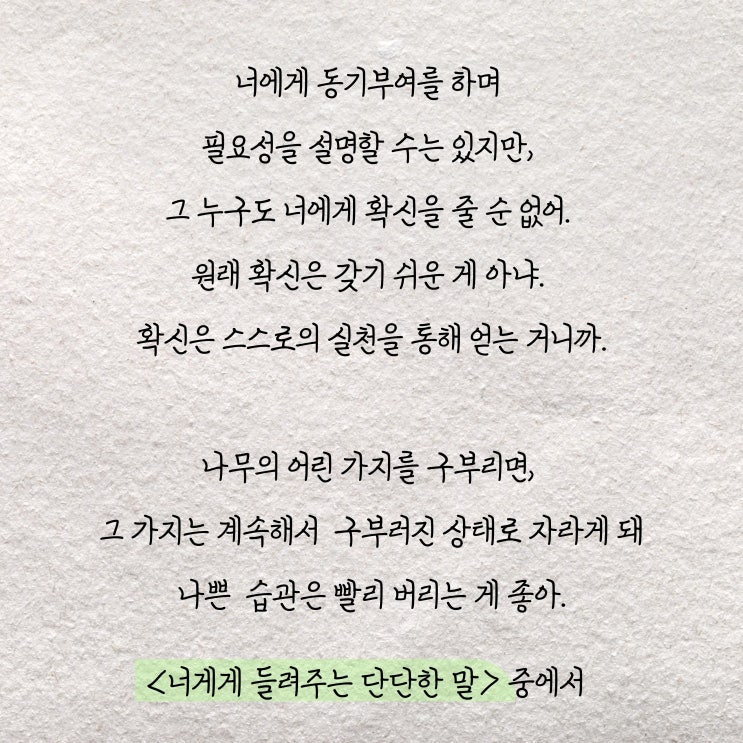 너에게 동기부여를 하며
필요성을 설명할 수는 있지만,
그 누구도 너에게 확신을 줄 순 없어.
원래 확신은 갖기 쉬운 게 아냐.
확신은 스스로의 실천을 통해 얻는 거니까.
나무의 어린 가지를 구부리면,
그 가지는 계속해서 구부러진 상태로 자라게 돼
나쁜 습관은 빨리 버리는 게 좋아.
<너게게 들려주는 단단한 말> 중에서